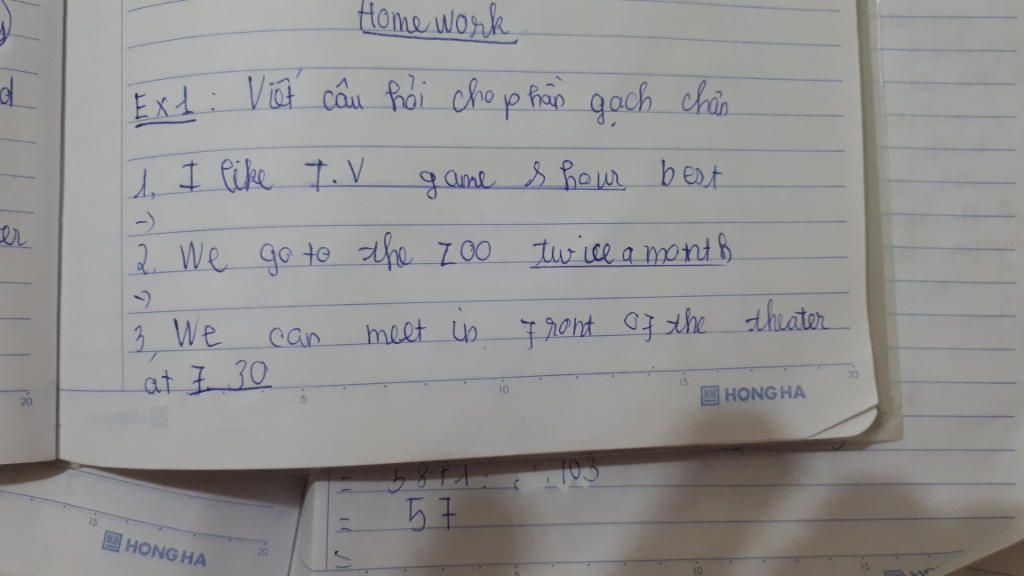 Home work
Ex1: Viết câu hỏi cho phần gạch chân
1, I like T.V game shour best
->
2. We go to the zoo twice a month
->
3, We can meet in front of the theater
at 7 30
HONG HA
= 58+1: 103
= 57
=
HONG HA
d
er
5
10
15
20
20
15
20
5
10
15